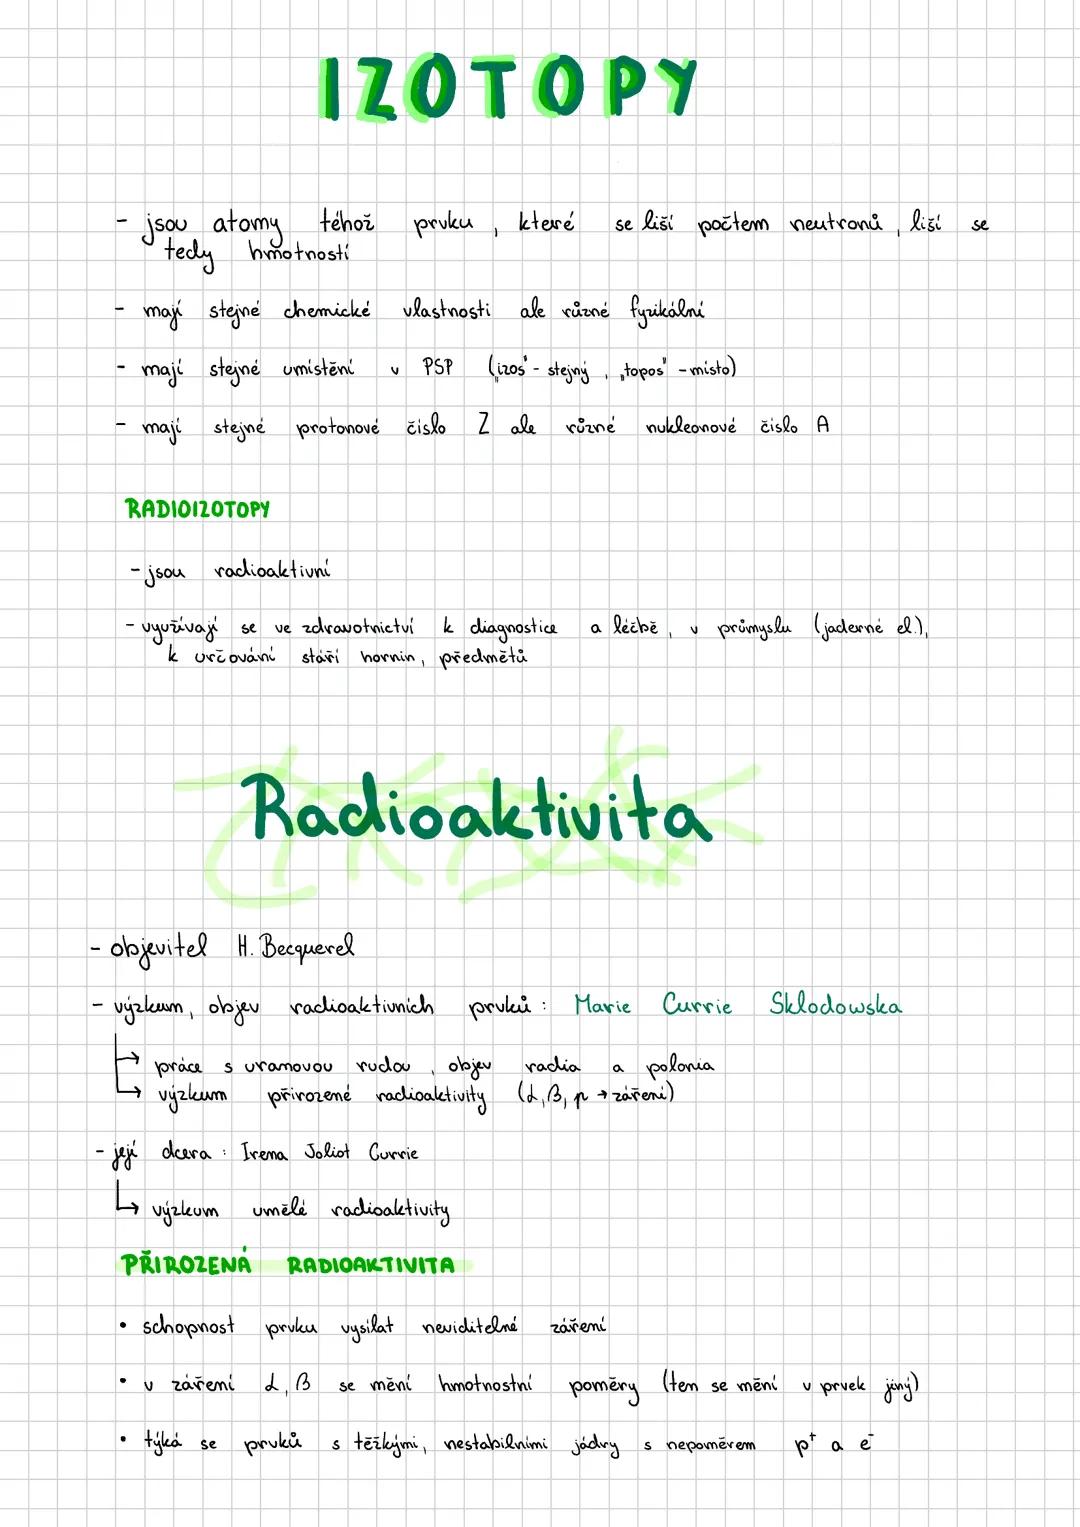 IZOTOPY
- jsou atomy téhož prvku, které se liší počtem neutronů, liší se
tedy hmotností
- mají stejné chemické vlastnosti ale různé fyzikální
- mají stejné umístění v PSP („izos" - stejný, „topos" - místo)
- mají stejné protonové číslo Z ale různé nukleonové číslo A
RADIOIZOTOPY
- jsou radioaktivní
- využívají se ve zdravotnictví k diagnostice a léčbě, v průmyslu (jaderné el.),
k určování stáří hornin, předmětů
Radioaktivita
- objevitel H. Becquerel
- výzkum, objev radioaktivních prvků: Marie Currie Sklodowska
↳ práce s uranovou rudou, objev radia a polonia
↳ výzkum přirozené radioaktivity (α, β, p → záření)
- její dcera: Irena Joliot Currie
↳ výzkum umělé radioaktivity
PŘIROZENÁ RADIOAKTIVITA
• schopnost prvku vysílat neviditelné záření
• v záření α, β se mění hmotnostní poměry (ten se mění v prvek jiný)
• týká se prvků s těžkými, nestabilními jádry s nepoměrem p⁺ a e⁻